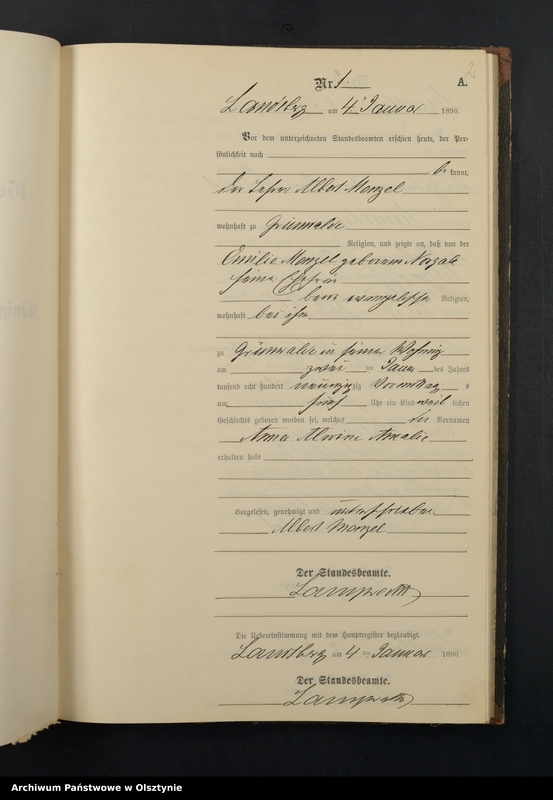 Nr. 1. A.
Landsberg am 4. Januar 1890.
Vor dem unterzeichneten Standesbeamten erschien heute, der Per-
sönlichkeit nach
be kannt,
der Albert Menzel
wohnhaft zu Grünwalde
Religion, und zeigte an, daß von der
Emilie Menzel geborenen
seiner Ehefrau
beide evangelischer Religion,
wohnhaft bei ihm
zu Grünwalde in seiner Wohnung
am zwei ten Januar des Jahres
tausend acht hundert neunzig zig Vormittag s
um fünf Uhr ein Kind weib lichen
Geschlechts geboren worden sei, welches die Vornamen
Anna Alwine Amalie
erhalten habe
Vorgelesen, genehmigt und unterschrieben
Albert Menzel
Der Standesbeamte.
Lamprecht
Die Uebereinstimmung mit dem Hauptregister beglaubigt.
Landsberg am 4 ten Januar 1890.
Der Standesbeamte.
Lamprecht
Archiwum Państwowe w Olsztynie